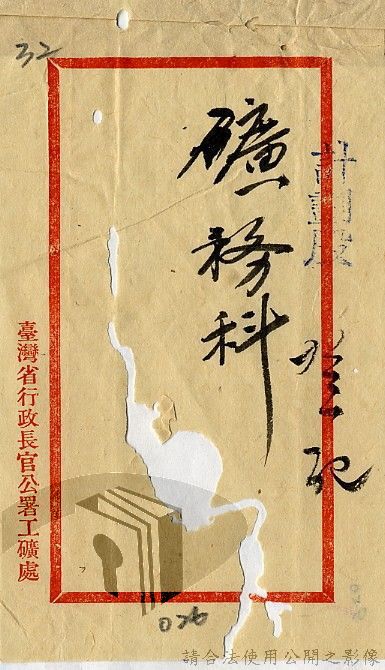 32
計劃股
登記
礦務科
臺灣省行政長官公署工礦處
026
請合法使用公開之影像